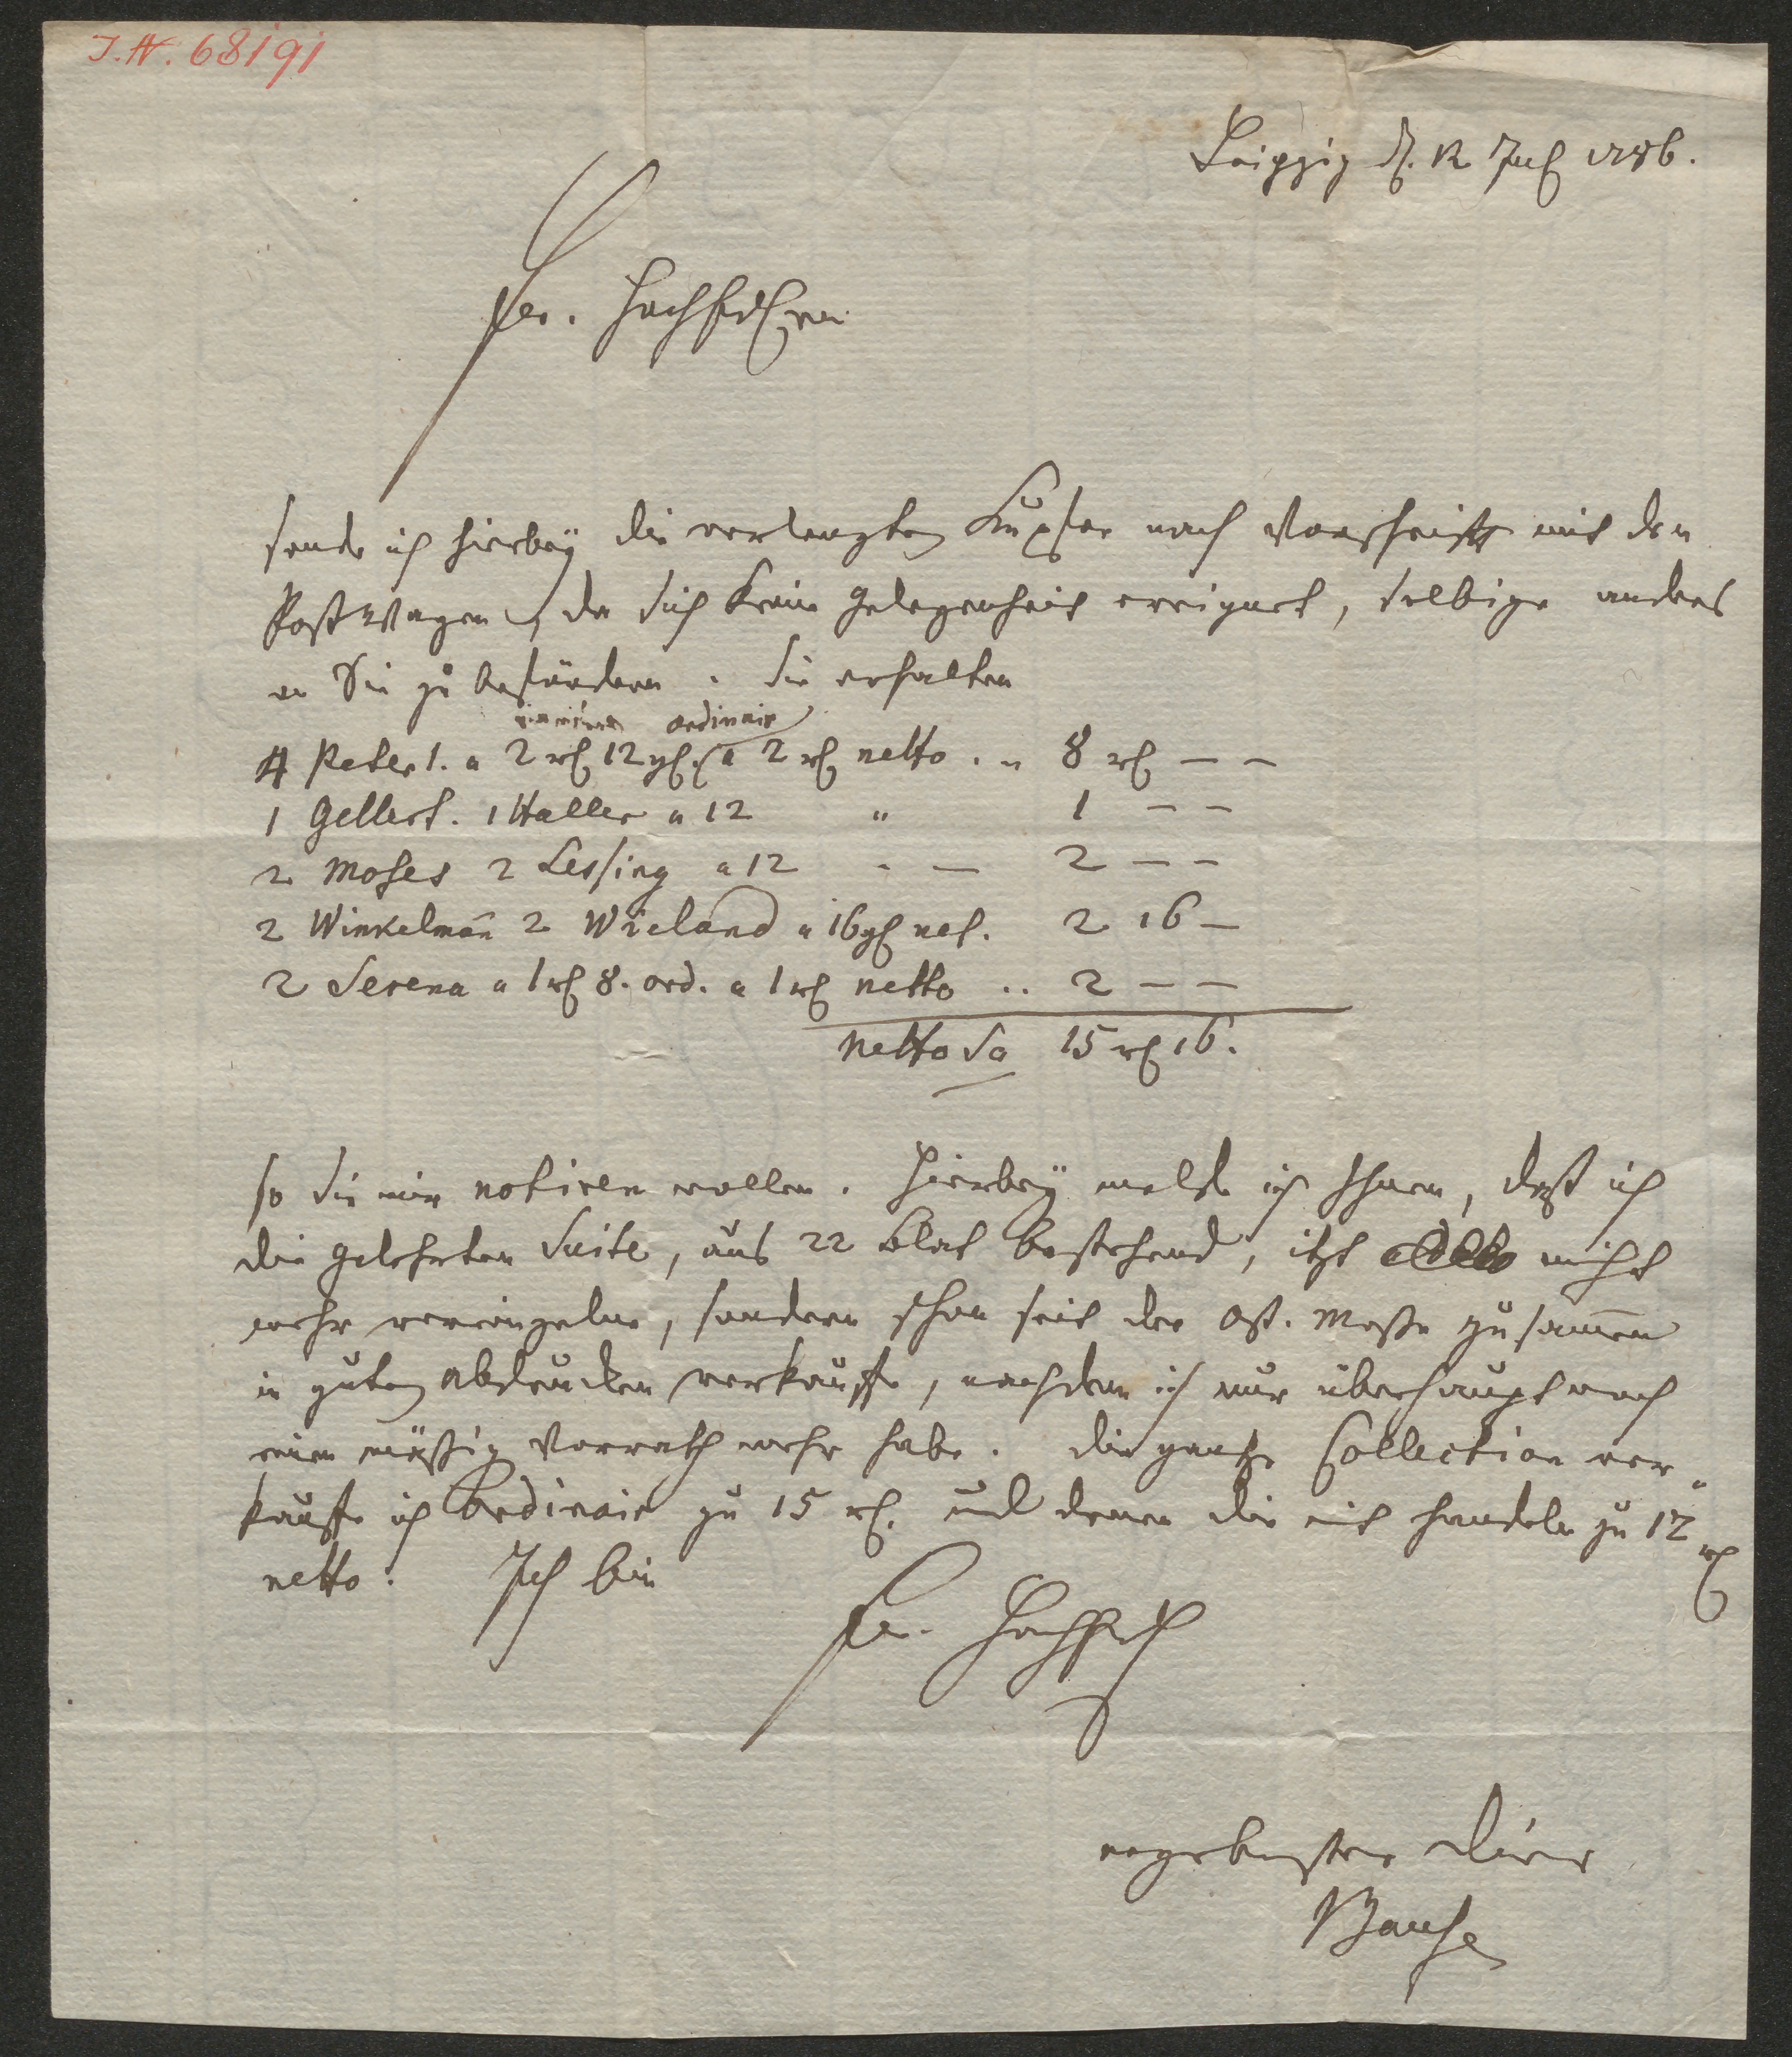 I. N. 68191
Leipzig d. 12 Jul 1786.
Ew. HochEdlen
sende ich hierbey die verlangten Kupfer nach Vorschrifft mit den
Post Wagen, da sich keine Gelegenheit ereignet, selbige anders
an Sie zu befördern. Sie erhalten
ordinair
4 Peter 1. a 2 rh 12 gl. a 2 rh netto. " 8 rh — —
1 Gellert. 1 Haller a 12 " 1 — —
2 Moses 2 Lessing a 12 - — 2 — —
2 Winkelmañ 2 Wieland a 16 gl net. 2 16 —
2 Serena a 1 rh 8. ord. a 1 rh netto .. 2 — —
netto Sa 15 rh 16.
so Sie mir notiren wollen. Hierbey melde ich Ihnen, daß ich
die gelehrten Suite, aus 22 Blat bestehend, itzt nicht
mehr vereinzelne, sondern schon seit der Ost. Messe zusam̄en
in guten Abdrucken verkauffe, nachdem ich nur überhaupt noch
einen mäßig Vorrath mehr habe. die gantze Collection ver-
kauffe ich ordinair zu 15 rh. und denen die mit handeln zu 12 rh
netto. Ich bin
Ew. HochEdl
ergebenster Diener
Bause